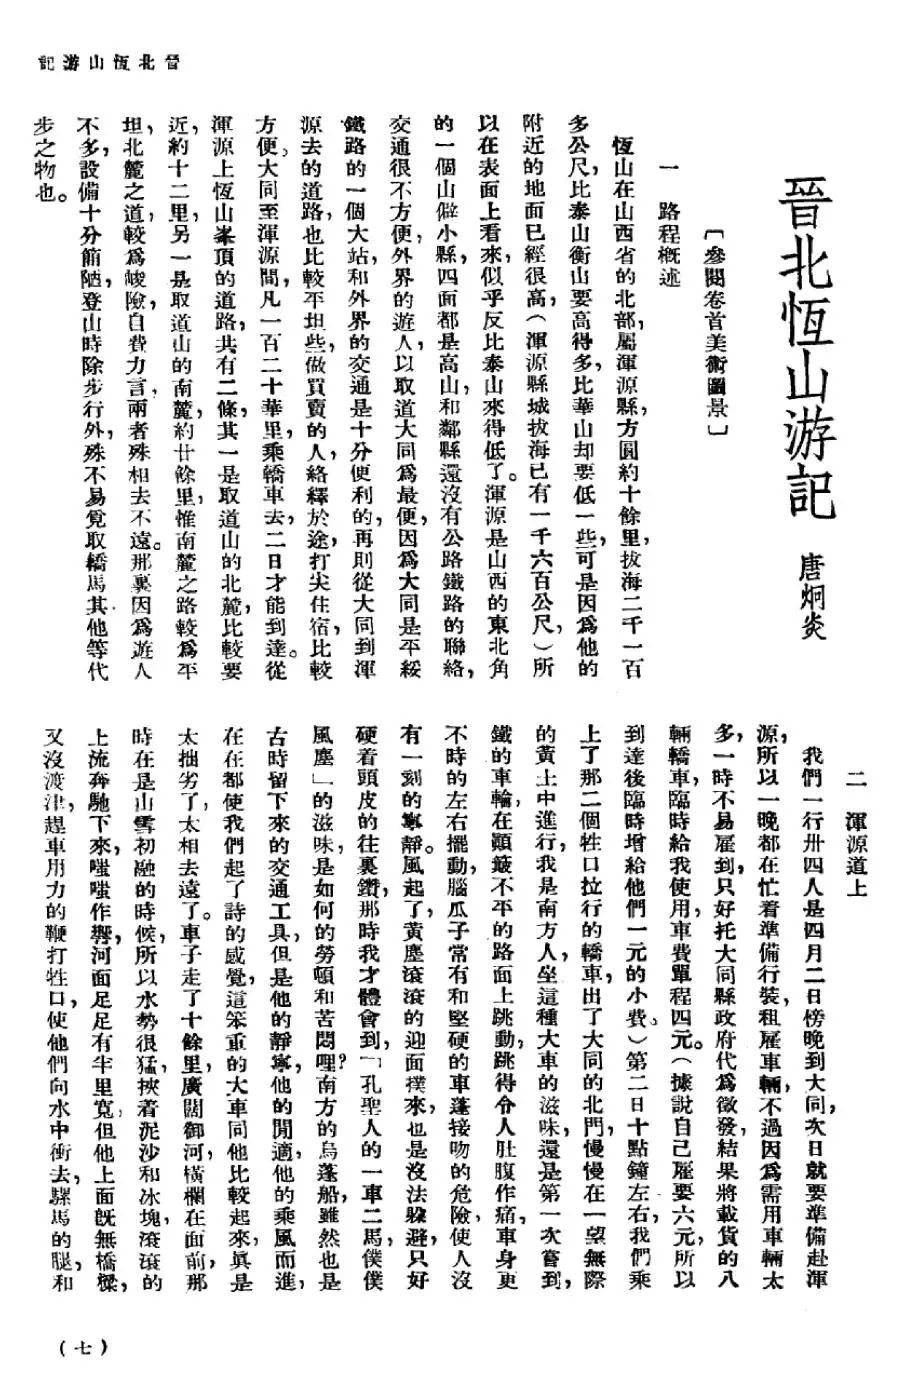 晉北恆山游記
晉北恆山游記
唐炯炎
〔參閱卷首美術圖景〕
一　路程概述
恆山在山西省的北部，屬渾源縣，方圓約十餘里，拔海二千一百
多公尺，比泰山衡山要高得多，比華山却要低一些，可是因爲他的
附近的地面已經很高，（渾源縣城拔海已有一千六百公尺，）所
以在表面上看來，似乎反比泰山來得低了。渾源是山西的東北角
的一個山僻小縣，四面都是高山，和鄰縣還沒有公路鐵路的聯絡，
交通很不方便，外界的遊人，以取道大同爲最便，因爲大同是平綏
鐵路的一個大站，和外界的交通是十分便利的，再則從大同到渾
源去的道路，也比較平坦些，做買賣的人，絡繹於途，打尖住宿，比較
方便。大同至渾源間，凡一百二十華里，乘轎車去，二日才能到達。從
渾源上恆山峯頂的道路，共有二條，其一是取道山的北麓，比較要
近，約十二里，另一是取道山的南麓，約廿餘里，惟南麓之路較爲平
坦，北麓之道，較爲峻險，自費力言，兩者殊相去不遠。那裏因爲遊人
不多，設備十分簡陋，登山時除步行外，殊不易覓取轎馬其他等代
步之物也。
二　渾源道上
我們一行卅四人是四月二日傍晚到大同，次日就要準備赴渾
源，所以一晚都在忙着準備行裝，租雇車輛，不過因爲需用車輛太
多，一時不易雇到，只好托大同縣政府代爲徵發，結果將載貨的八
輛轎車，臨時給我使用，車費單程四元。（據說自己雇要六元，所以
到達後臨時增給他們一元的小費。）第二日十點鐘左右，我們乘
上了那二個牲口拉行的轎車，出了大同的北門，慢慢在一望無際
的黃土中進行，我是南方人，坐這種大車的滋味，還是第一次嘗到，
鐵的車輪，在顚簸不平的路面上跳動，跳得令人肚腹作痛，車身更
不時的左右擺動，腦瓜子常有和堅硬的車蓬接吻的危險，使人沒
有一刻的寧靜。風起了，黃塵滾滾的迎面撲來，也是沒法躱避，只好
硬着頭皮的往裏鑽，那時我才體會到，「孔聖人的一車二馬，僕僕
風塵」的滋味，是如何的勞頓和苦悶哩？南方的烏蓬船，雖然也是
古時留下來的交通工具，但是他的靜寧，他的閒適，他的乘風而進，
在在都使我們起了詩的感覺，這笨重的大車同他比較起來，眞是
太拙劣了，太相去遠了。車子走了十餘里，廣闊御河，橫欄在面前，那
時在是山雪初融的時候，所以水勢很猛，挾着泥沙和冰塊，滾滾的
上流奔馳下來，嗤嗤作響，河面足足有半里寬，但他上面旣無橋樑，
又沒渡津，趕車用力的鞭打牲口，使他們向水中衝去，騾馬的腿，和
（七）